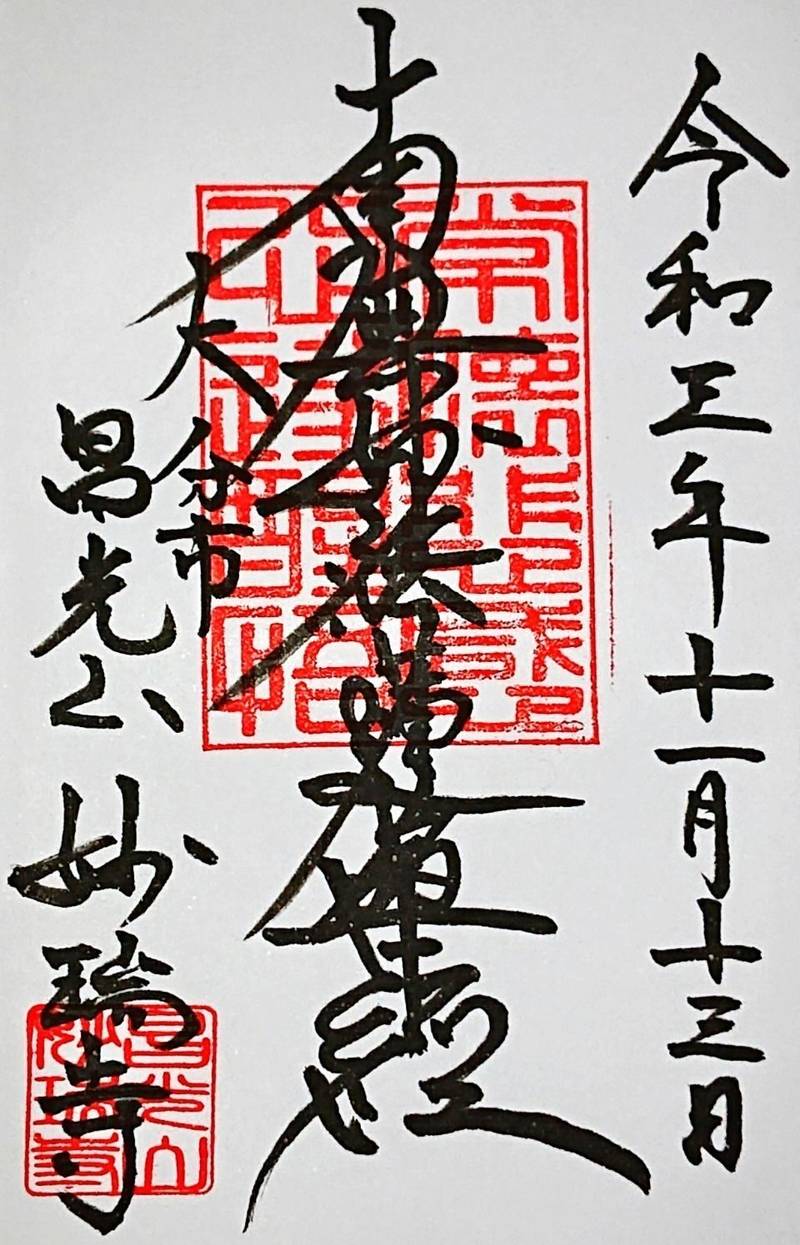 令和三年十一月十三日
南無妙法蓮華経
大分市
昌光山 妙瑞寺
昌光山
妙瑞寺